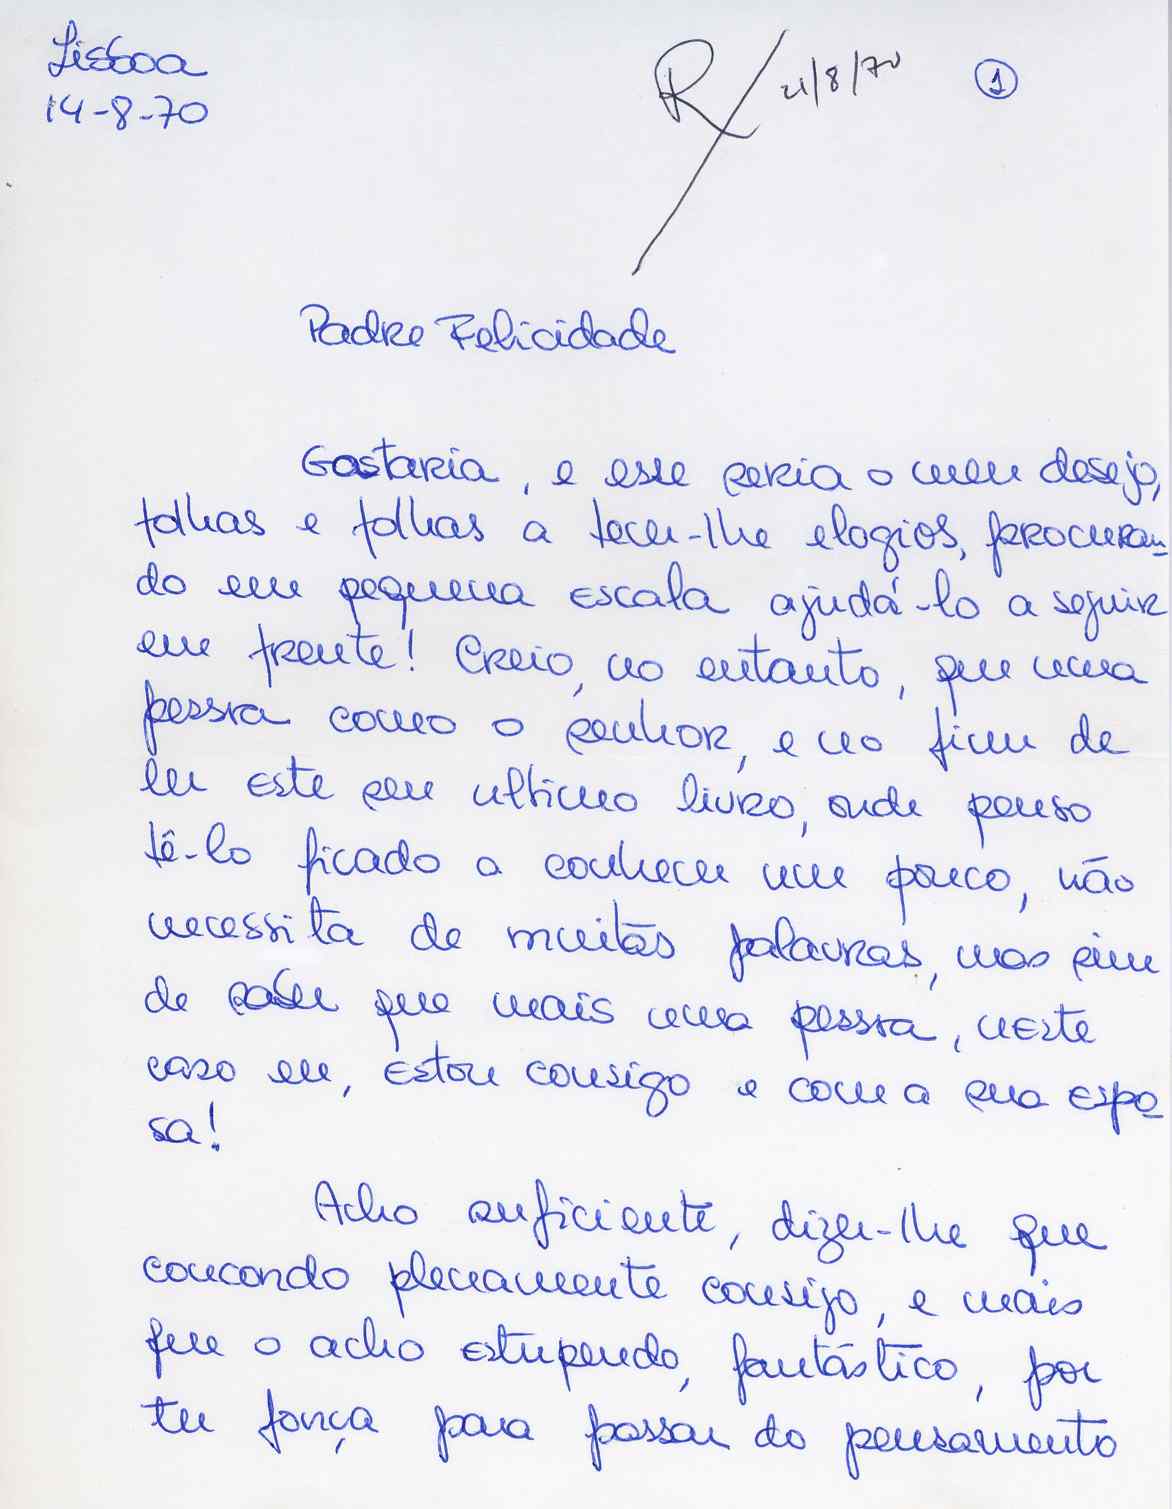 Lisboa
14-8-70
R 21/8/70
1
Padre Felicidade
Gostaria, e esse seria o meu desejo,
folhas e folhas a tecer-lhe elogios, procuran-
do em pequena escala ajudá-lo a seguir
em frente! Creio, no entanto, que uma
pessoa como o senhor, e no fim de
ler este seu ultimo livro, onde penso
tê-lo ficado a conhecer um pouco, não
necessita de muitas palavras, mas sim
de saber que mais uma pessoa, neste
caso eu, estou consigo e com a sua espo-
sa!
Acho suficiente, dizer-lhe que
concordo plenamente consigo, e mais
que o acho estupendo, fantástico, por
ter força para passar do pensamento